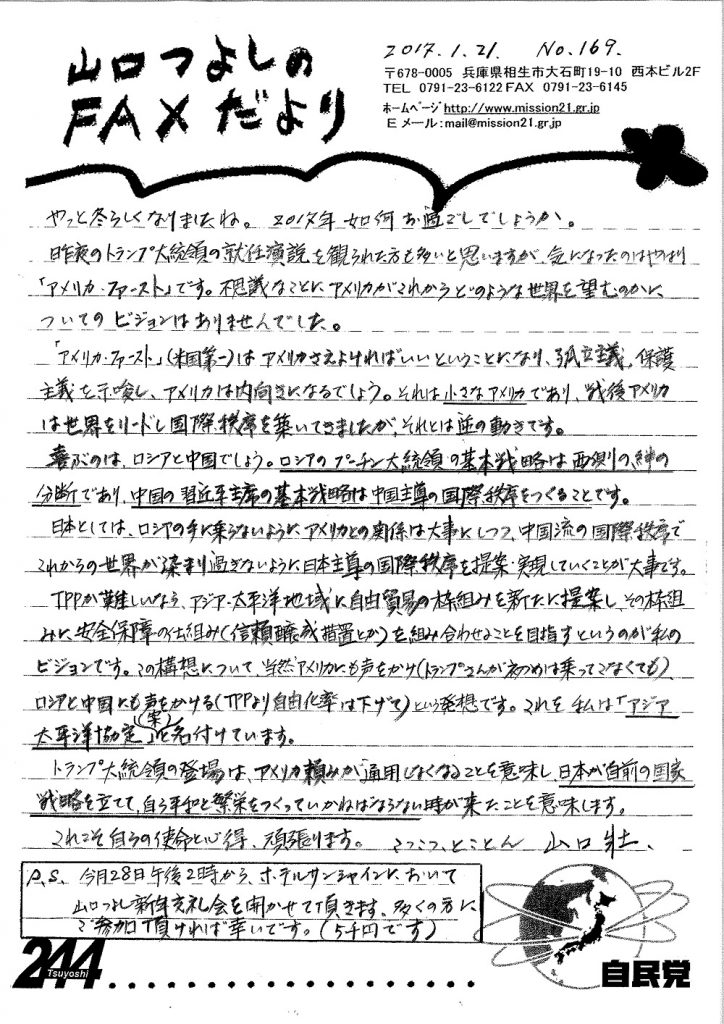 山口つよしの
FAXだより
2017.1.21. No.169.
〒678-0005 兵庫県相生市大石町19-10 西本ビル2F
TEL 0791-23-6122 FAX 0791-23-6145
ホームページ http://www.mission21.gr.jp
Eメール:mail@mission21.gr.jp
やっと冬らしくなりましたね。2017年 如何お過ごしでしょうか。
昨夜のトランプ大統領の就任演説を観られた方も多いと思いますが、気になったのはやはり
「アメリカ・ファースト」です。不思議なことにアメリカがこれからどのような世界を望むのかに
ついてのビジョンはありませんでした。
「アメリカ・ファースト」(米国第一)はアメリカさえよければいいということになり、孤立主義、保護
主義を示唆し、アメリカは内向きになるでしょう。それは小さなアメリカであり、戦後アメリカ
は世界をリードし国際秩序を築いてきましたが、それとは逆の動きです。
喜ぶのは、ロシアと中国でしょう。ロシアのプーチン大統領の基本戦略は西側の絆の
分断であり、中国の習近平主席の基本戦略は中国主導の国際秩序をつくることです。
日本としては、ロシアの手に乗らないようにアメリカとの関係は大事にしつつ、中国流の国際秩序で
これからの世界が染まり過ぎないように日本主導の国際秩序を提案・実現していくことが大事です。
TPPが難しいなら、アジア・太平洋地域に自由貿易の枠組みを新たに提案し、その枠組
みに安全保障の仕組み(信頼醸成措置とか)を組み合わせることを目指すというのが私の
ビジョンです。この構想について、当然アメリカにも声をかけ(トランプさんが初めは乗ってこなくても)、
ロシアと中国にも声をかける(TPPより自由化率は下げて)という発想です。これを私は「アジア
太平洋協定(案)」と名付けています。
トランプ大統領の登場は、アメリカ頼みが通用しなくなることを意味し、日本が自前の国家
戦略を立てて、自ら平和と繁栄をつくっていかねばならない時が来たことを意味します。
これこそ自らの使命と心得、頑張ります。 こつこつ、とことん 山口 壯.
P.S. 今月28日午後2時から、ホテルサンシャインにおいて
山口つよし新年交礼会を開かせて頂きます。多くの方に
ご参加頂ければ幸いです。(5千円です)
244
Tsuyoshi
自民党